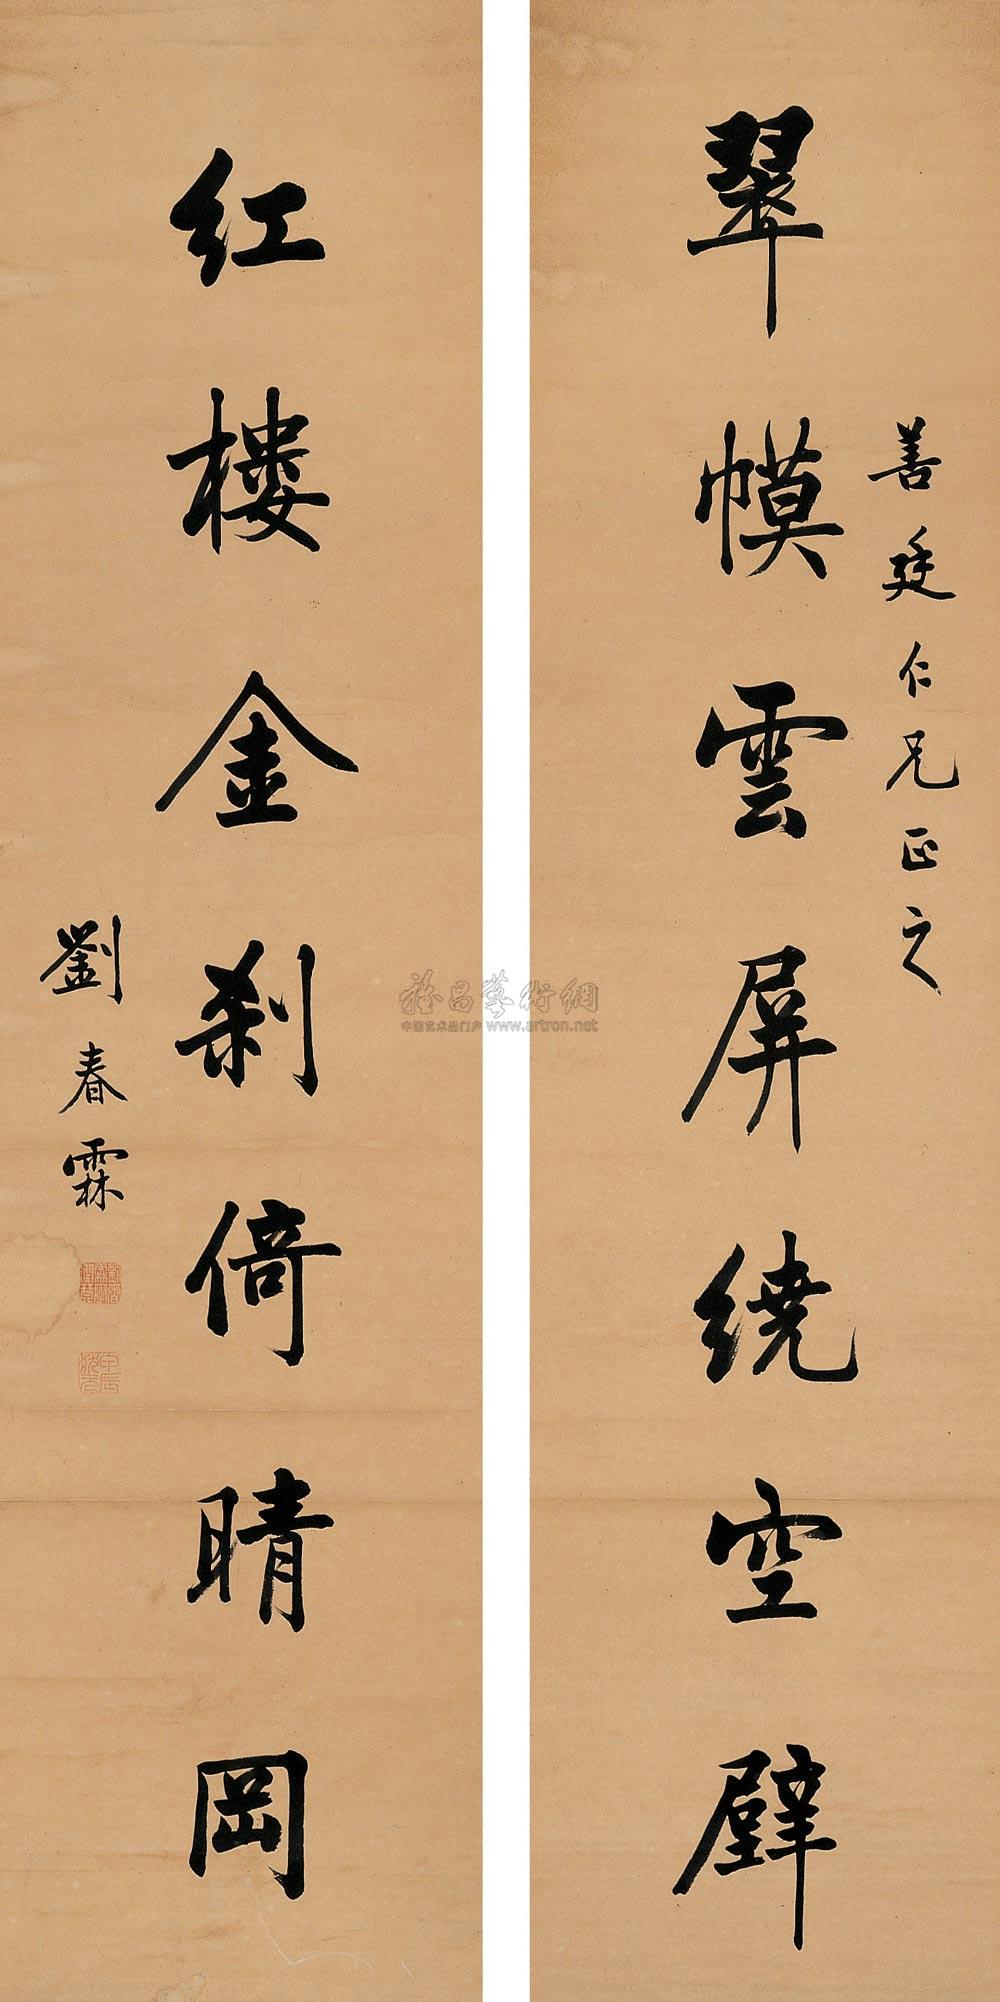 善廷仁兄正之
翠幙雲屏繞空壁
紅樓金刹倚晴岡
劉春霖
雅昌藝術網
中国艺术品门户 www.artron.net
甲辰狀元